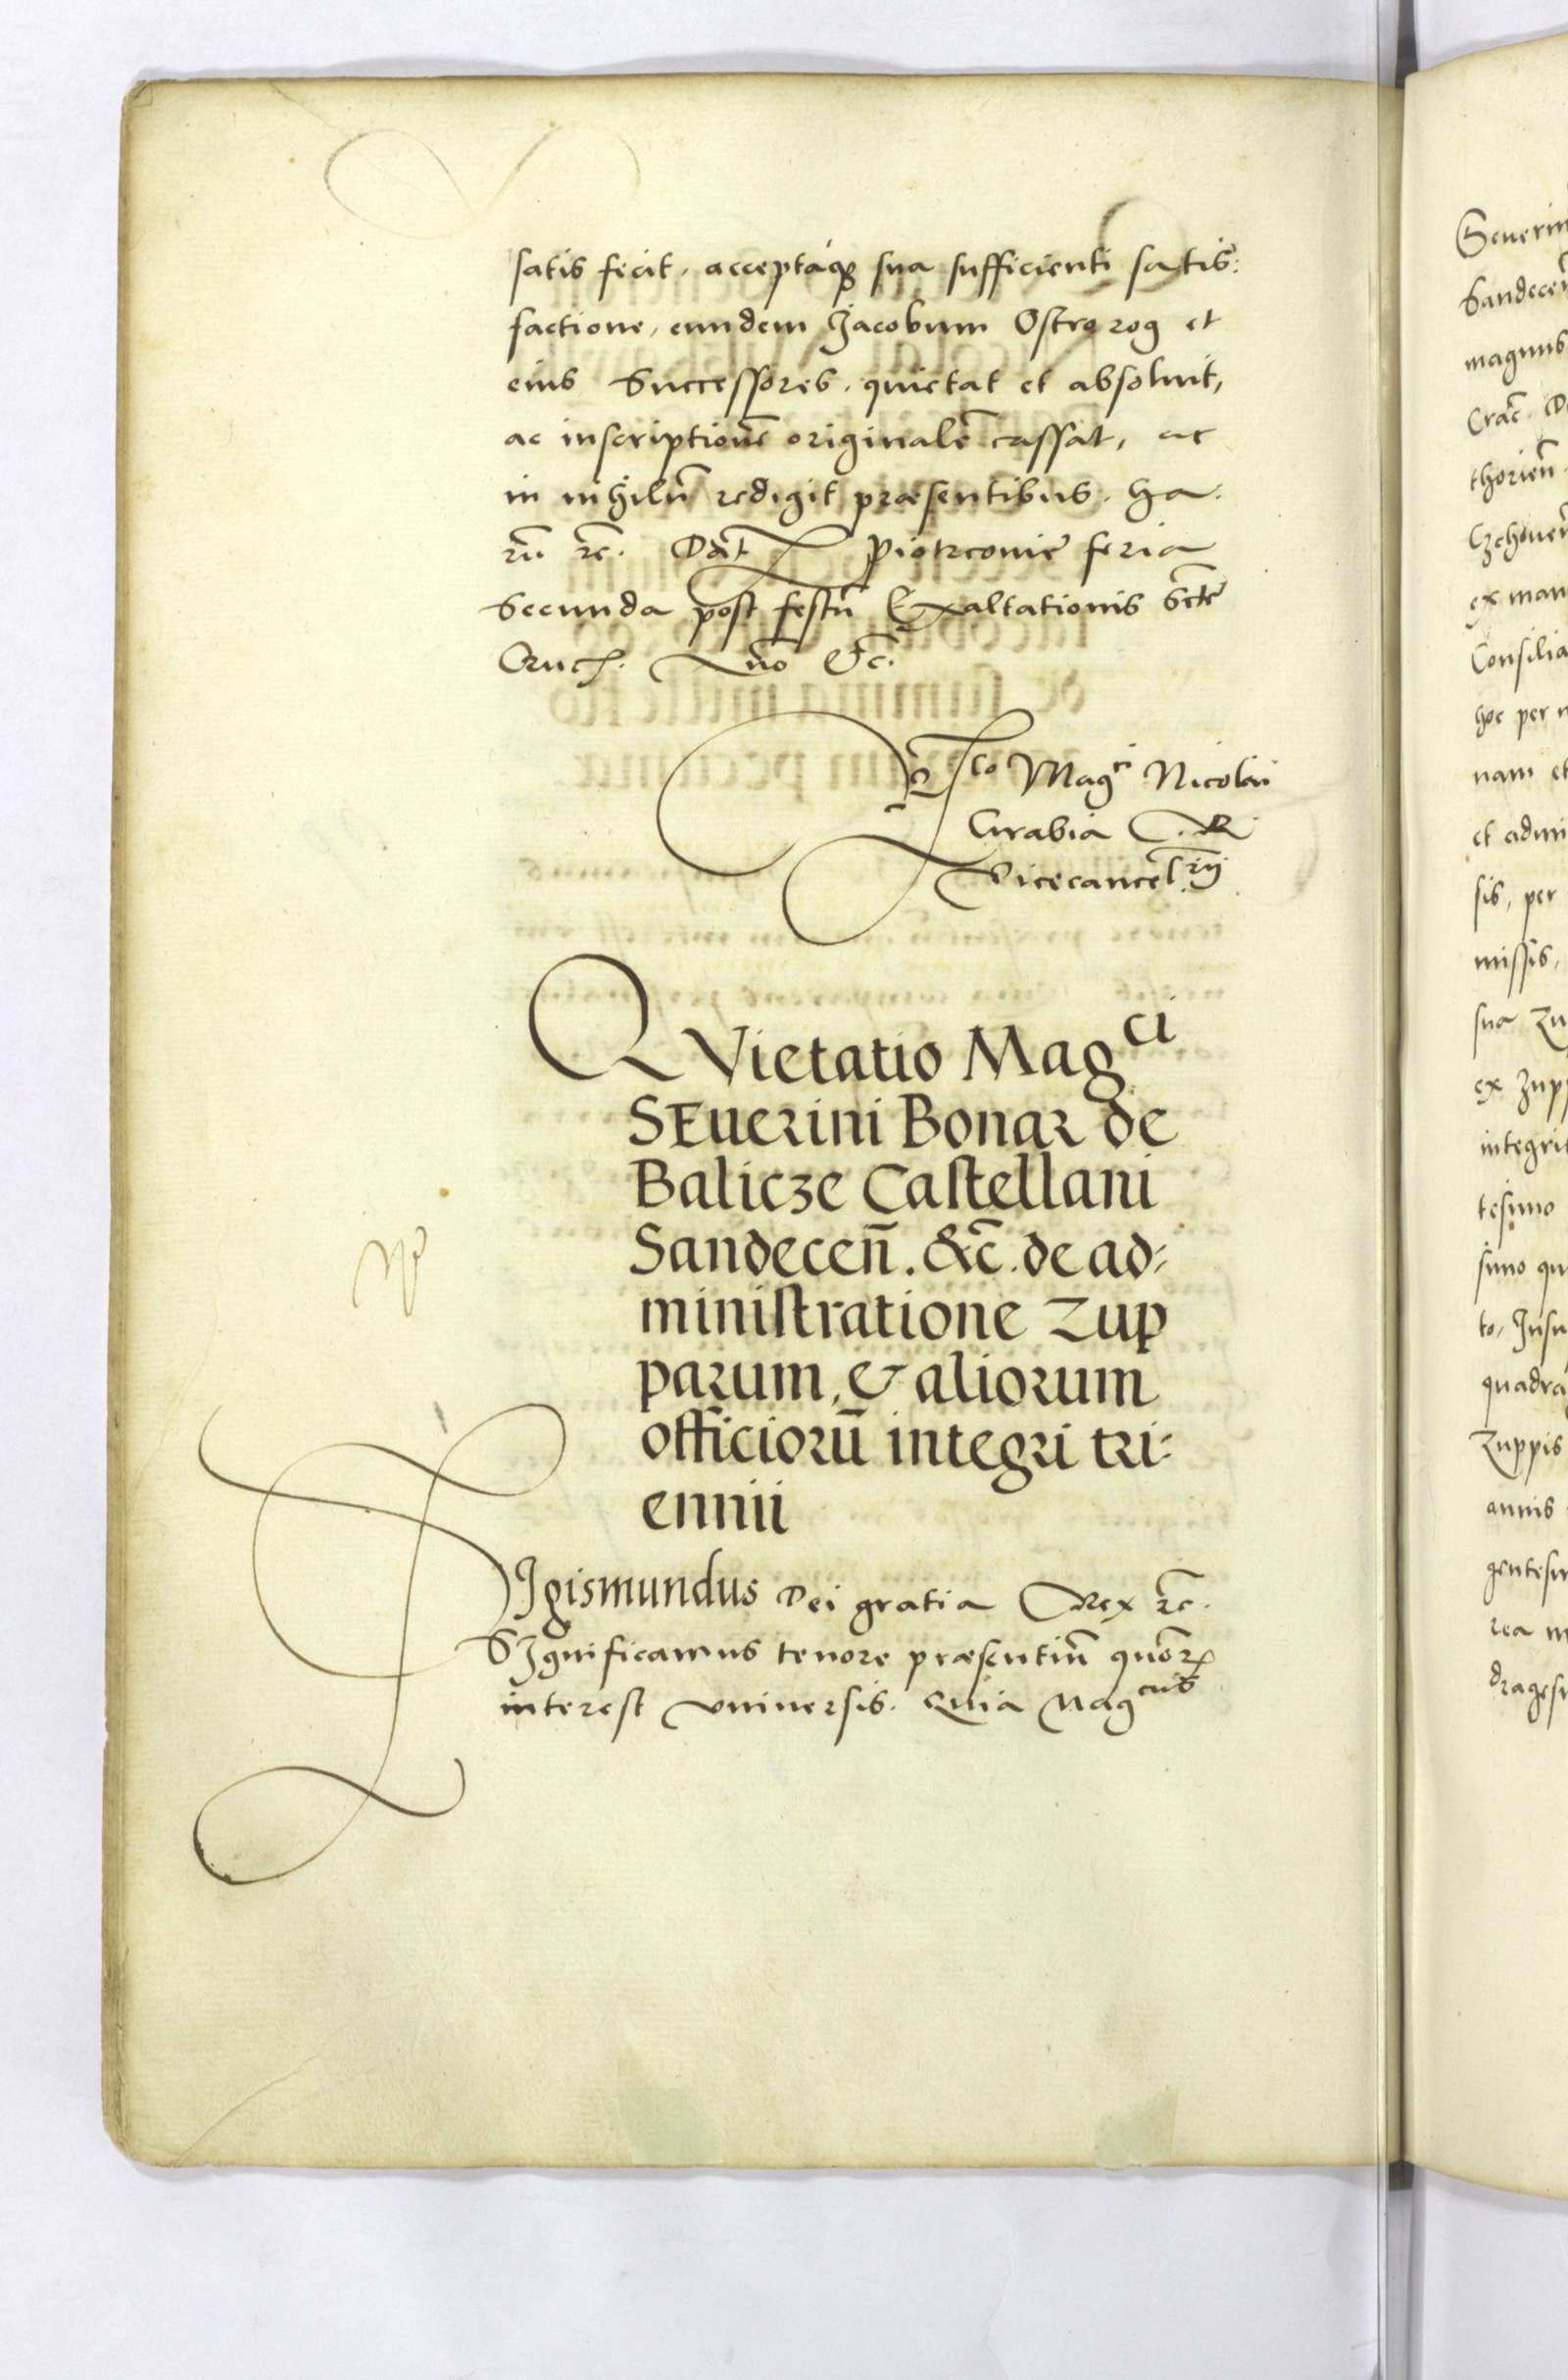 satis fecit, acceptaq3 sua sufficienti satis:
factione, eundem Jacobum Ostrorog et
eius Successores, quietat et absoluit,
ac inscriptionē originalē cassat, ac
in nihilū redigit præsentibus. Ha:
rū rc̄. Dāt Piotrconiē feria
Secunda post festū Exaltationis Sctē
Cruc. Āno &c̄.
Rlō Magci Nicolai
Grabia R
Vicecancelrij
QVietatio Magci
SEuerini Bonar de
Balicze Castellani
Sandecen̄. &c̄. de ad:
ministratione Zup
parum, & aliorum
officiorū integri tri:
ennii
SIgismundus Dei gratia Rex rc̄.
SIgnificamus tenore præsentiū quōrꝫ
interest vniuersis. Quia Magcus
Seuerin
Sandecen̄
magnus
Crac̄.
thorien̄
ex man
Consilia
hoc per
nam et
et admi
sis, per
missis,
sua Zu
ex Zupp
integri
tesimo
simo qu
to, Insu
quadra
Zuppis
annis
gentesi
rea m
dragesi